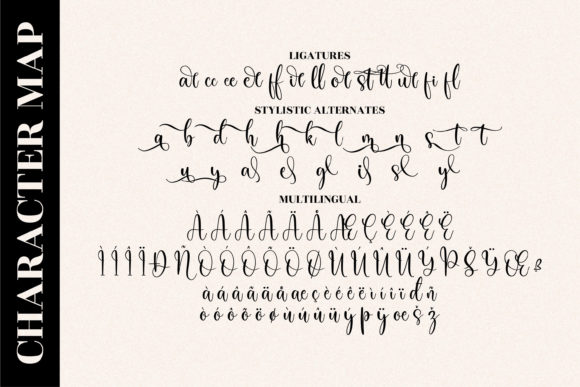 CHARACTER MAP
LIGATURES
ee ff ll st tt fi fl
STYLISTIC ALTERNATES
a b d h h k l m n s t t
u y as es gl is sl yl
MULTILINGUAL
À Á Â Ã Ä Å Æ Ç È É Ê Ë
Ì Í Î Ï Ð Ñ Ò Ó Ô Õ Ö Ø Ù Ú Û Ü Ý Þ Š Ÿ Œ ß
à á â ã ä å æ ç è é ê ë ì í î ï ñ
ò ó ô õ ö ø ù ú û ü ý þ ÿ œ š ž